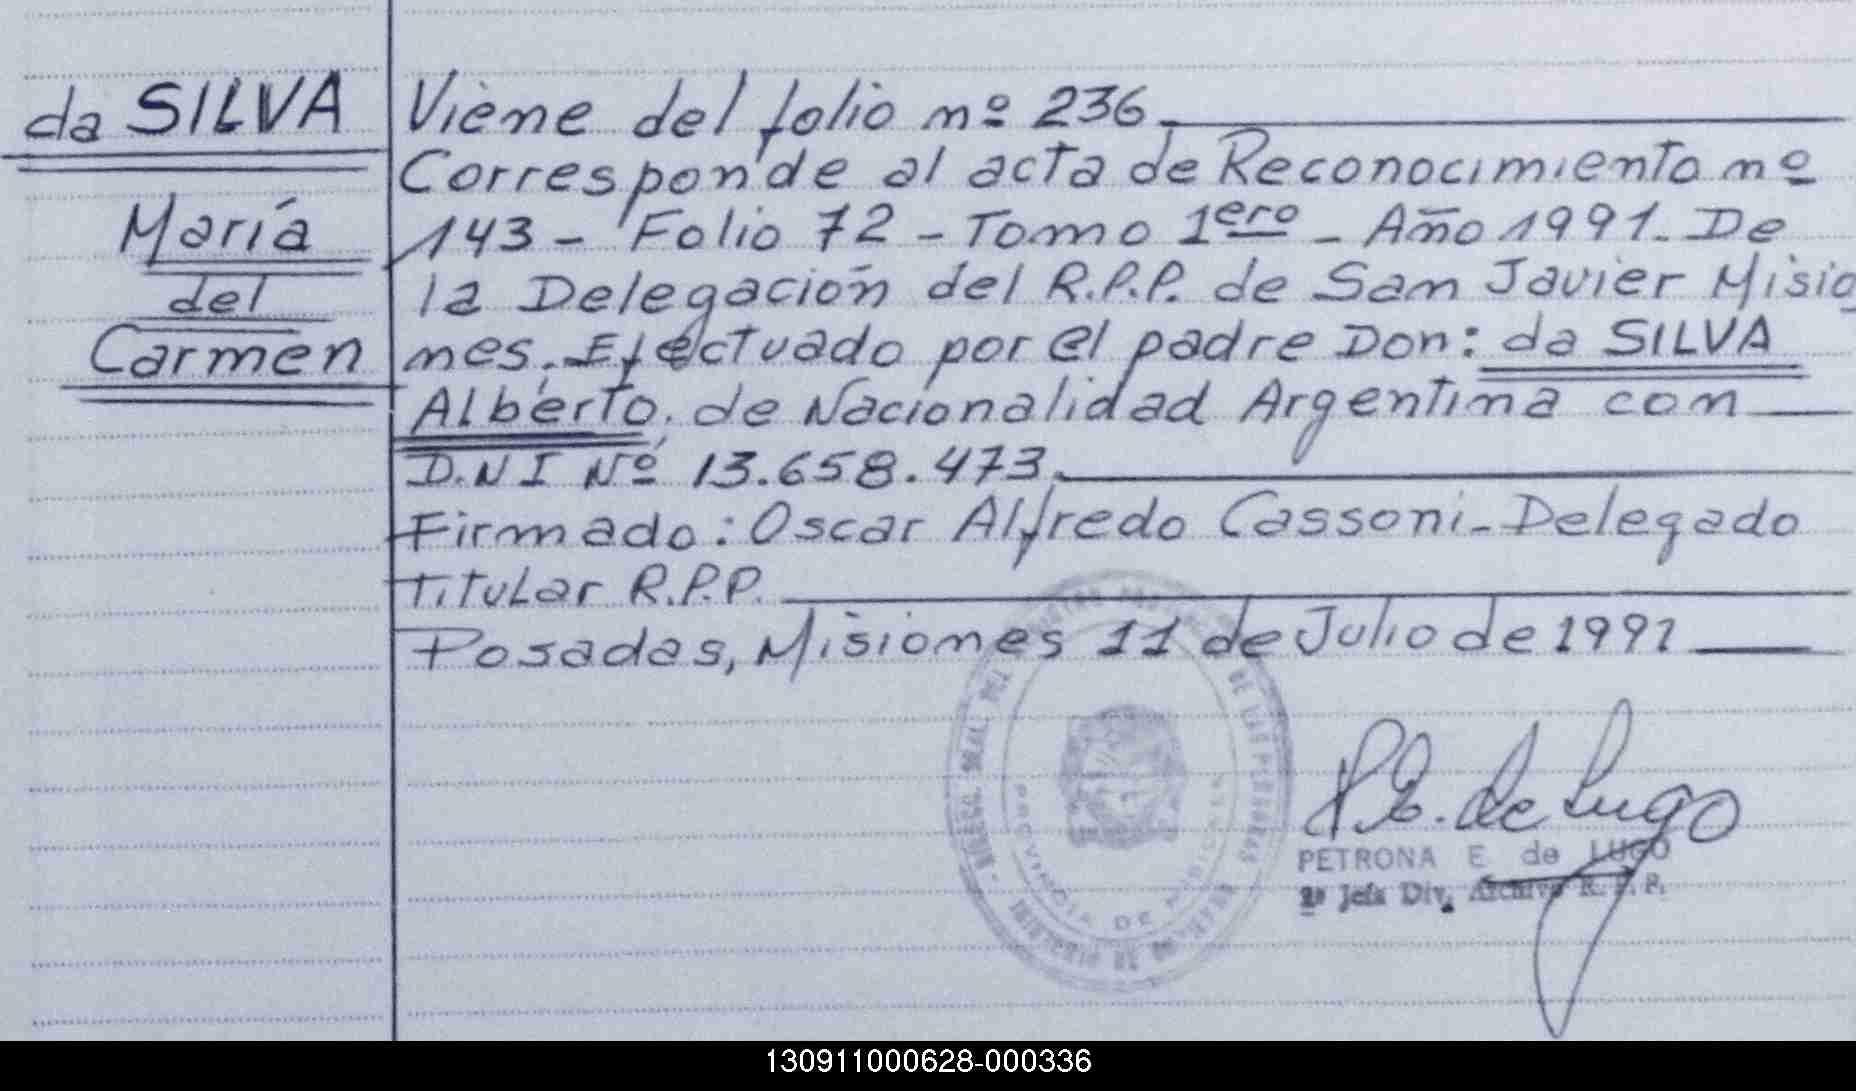 da SILVA
María
del
Carmen
Viene del folio nº 236
Corresponde al acta de Reconocimiento nº
143 - Folio 72 - Tomo 1ero - Año 1991. De
la Delegación del R.P.P. de San Javier Misio
nes. Efectuado por el padre Don: da SILVA
Alberto, de Nacionalidad Argentina con
D.N I Nº 13.658.473.
Firmado: Oscar Alfredo Cassoni - Delegado
Titular R.P.P.
Posadas, Misiones 11 de Julio de 1991
DE LAS PERSONAS
PROVINCIA DE MISIONES
P.E. de Lugo
PETRONA E de LUGO
2ª Jefa Div. Archivo R. P. P.
130911000628-000336